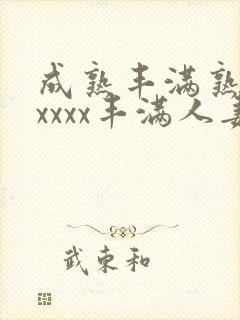 成熟丰满熟
xxxx丰满人妻
武东和